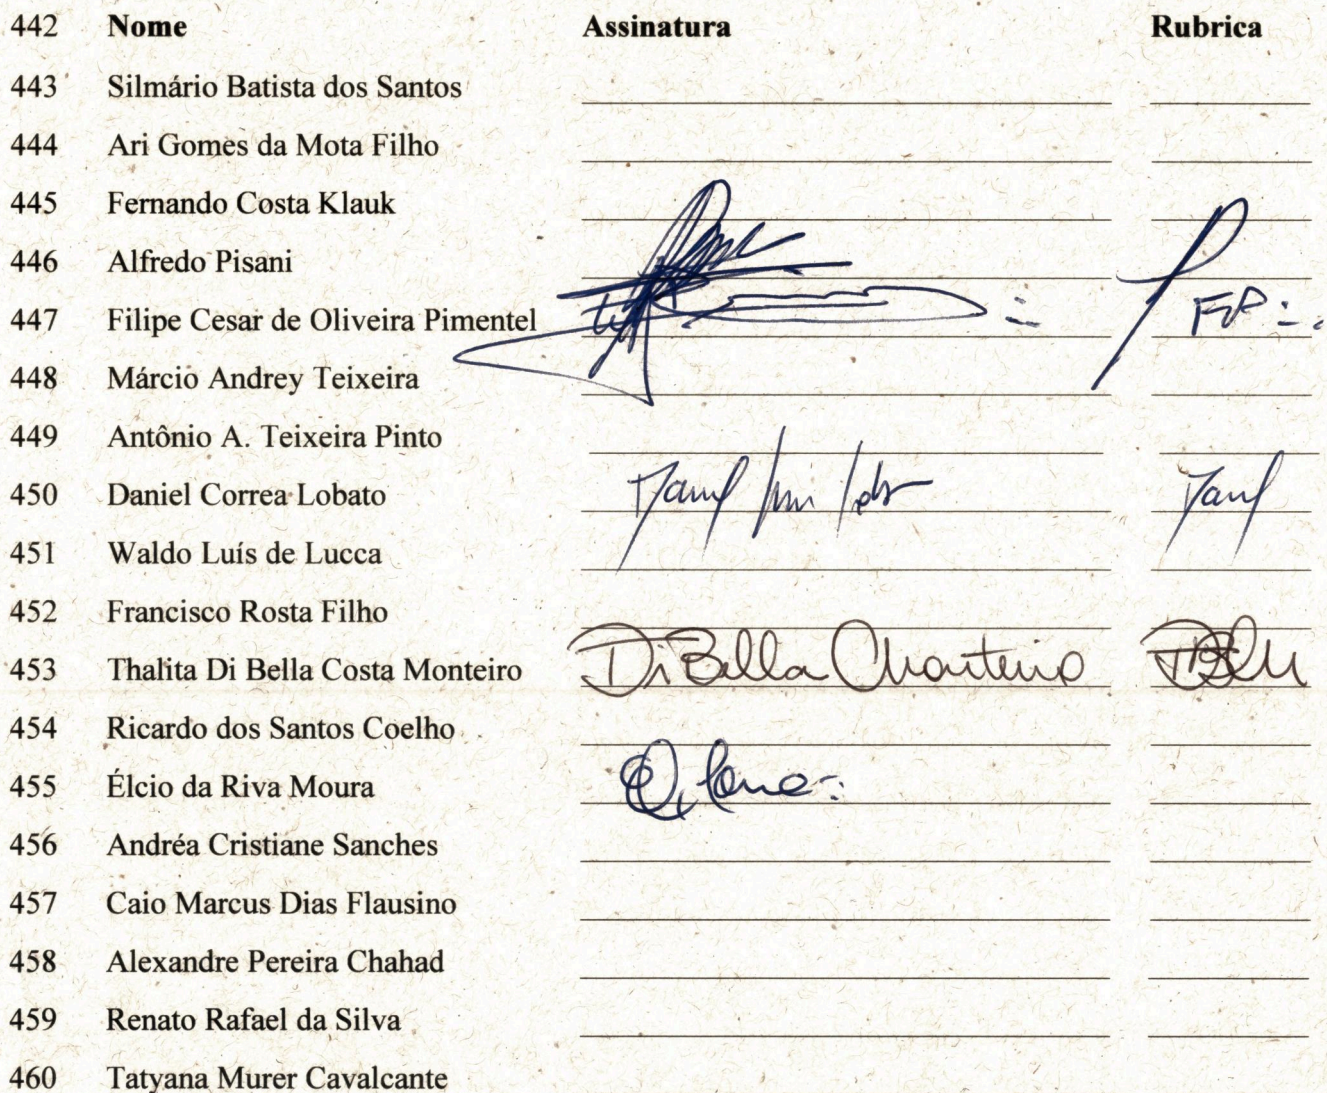 442 Nome Assinatura Rubrica
443 Silmário Batista dos Santos
444 Ari Gomes da Mota Filho
445 Fernando Costa Klauk
446 Alfredo Pisani
447 Filipe Cesar de Oliveira Pimentel FP
448 Márcio Andrey Teixeira
449 Antônio A. Teixeira Pinto
450 Daniel Correa Lobato
451 Waldo Luís de Lucca
452 Francisco Rosta Filho
453 Thalita Di Bella Costa Monteiro Di Bella Monteiro
454 Ricardo dos Santos Coelho
455 Élcio da Riva Moura
456 Andréa Cristiane Sanches
457 Caio Marcus Dias Flausino
458 Alexandre Pereira Chahad
459 Renato Rafael da Silva
460 Tatyana Murer Cavalcante